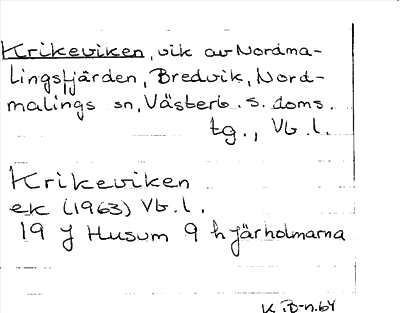 Krikeviken, vik av Nordma-
lingsfjärden, Bredvik, Nord-
malings sn, Västerb. s. doms.
tg., Vb. l.
Krikeviken
ek (1963) Vb. l.
19 J Husum 9 h Järholmarna
K. B-n. 64